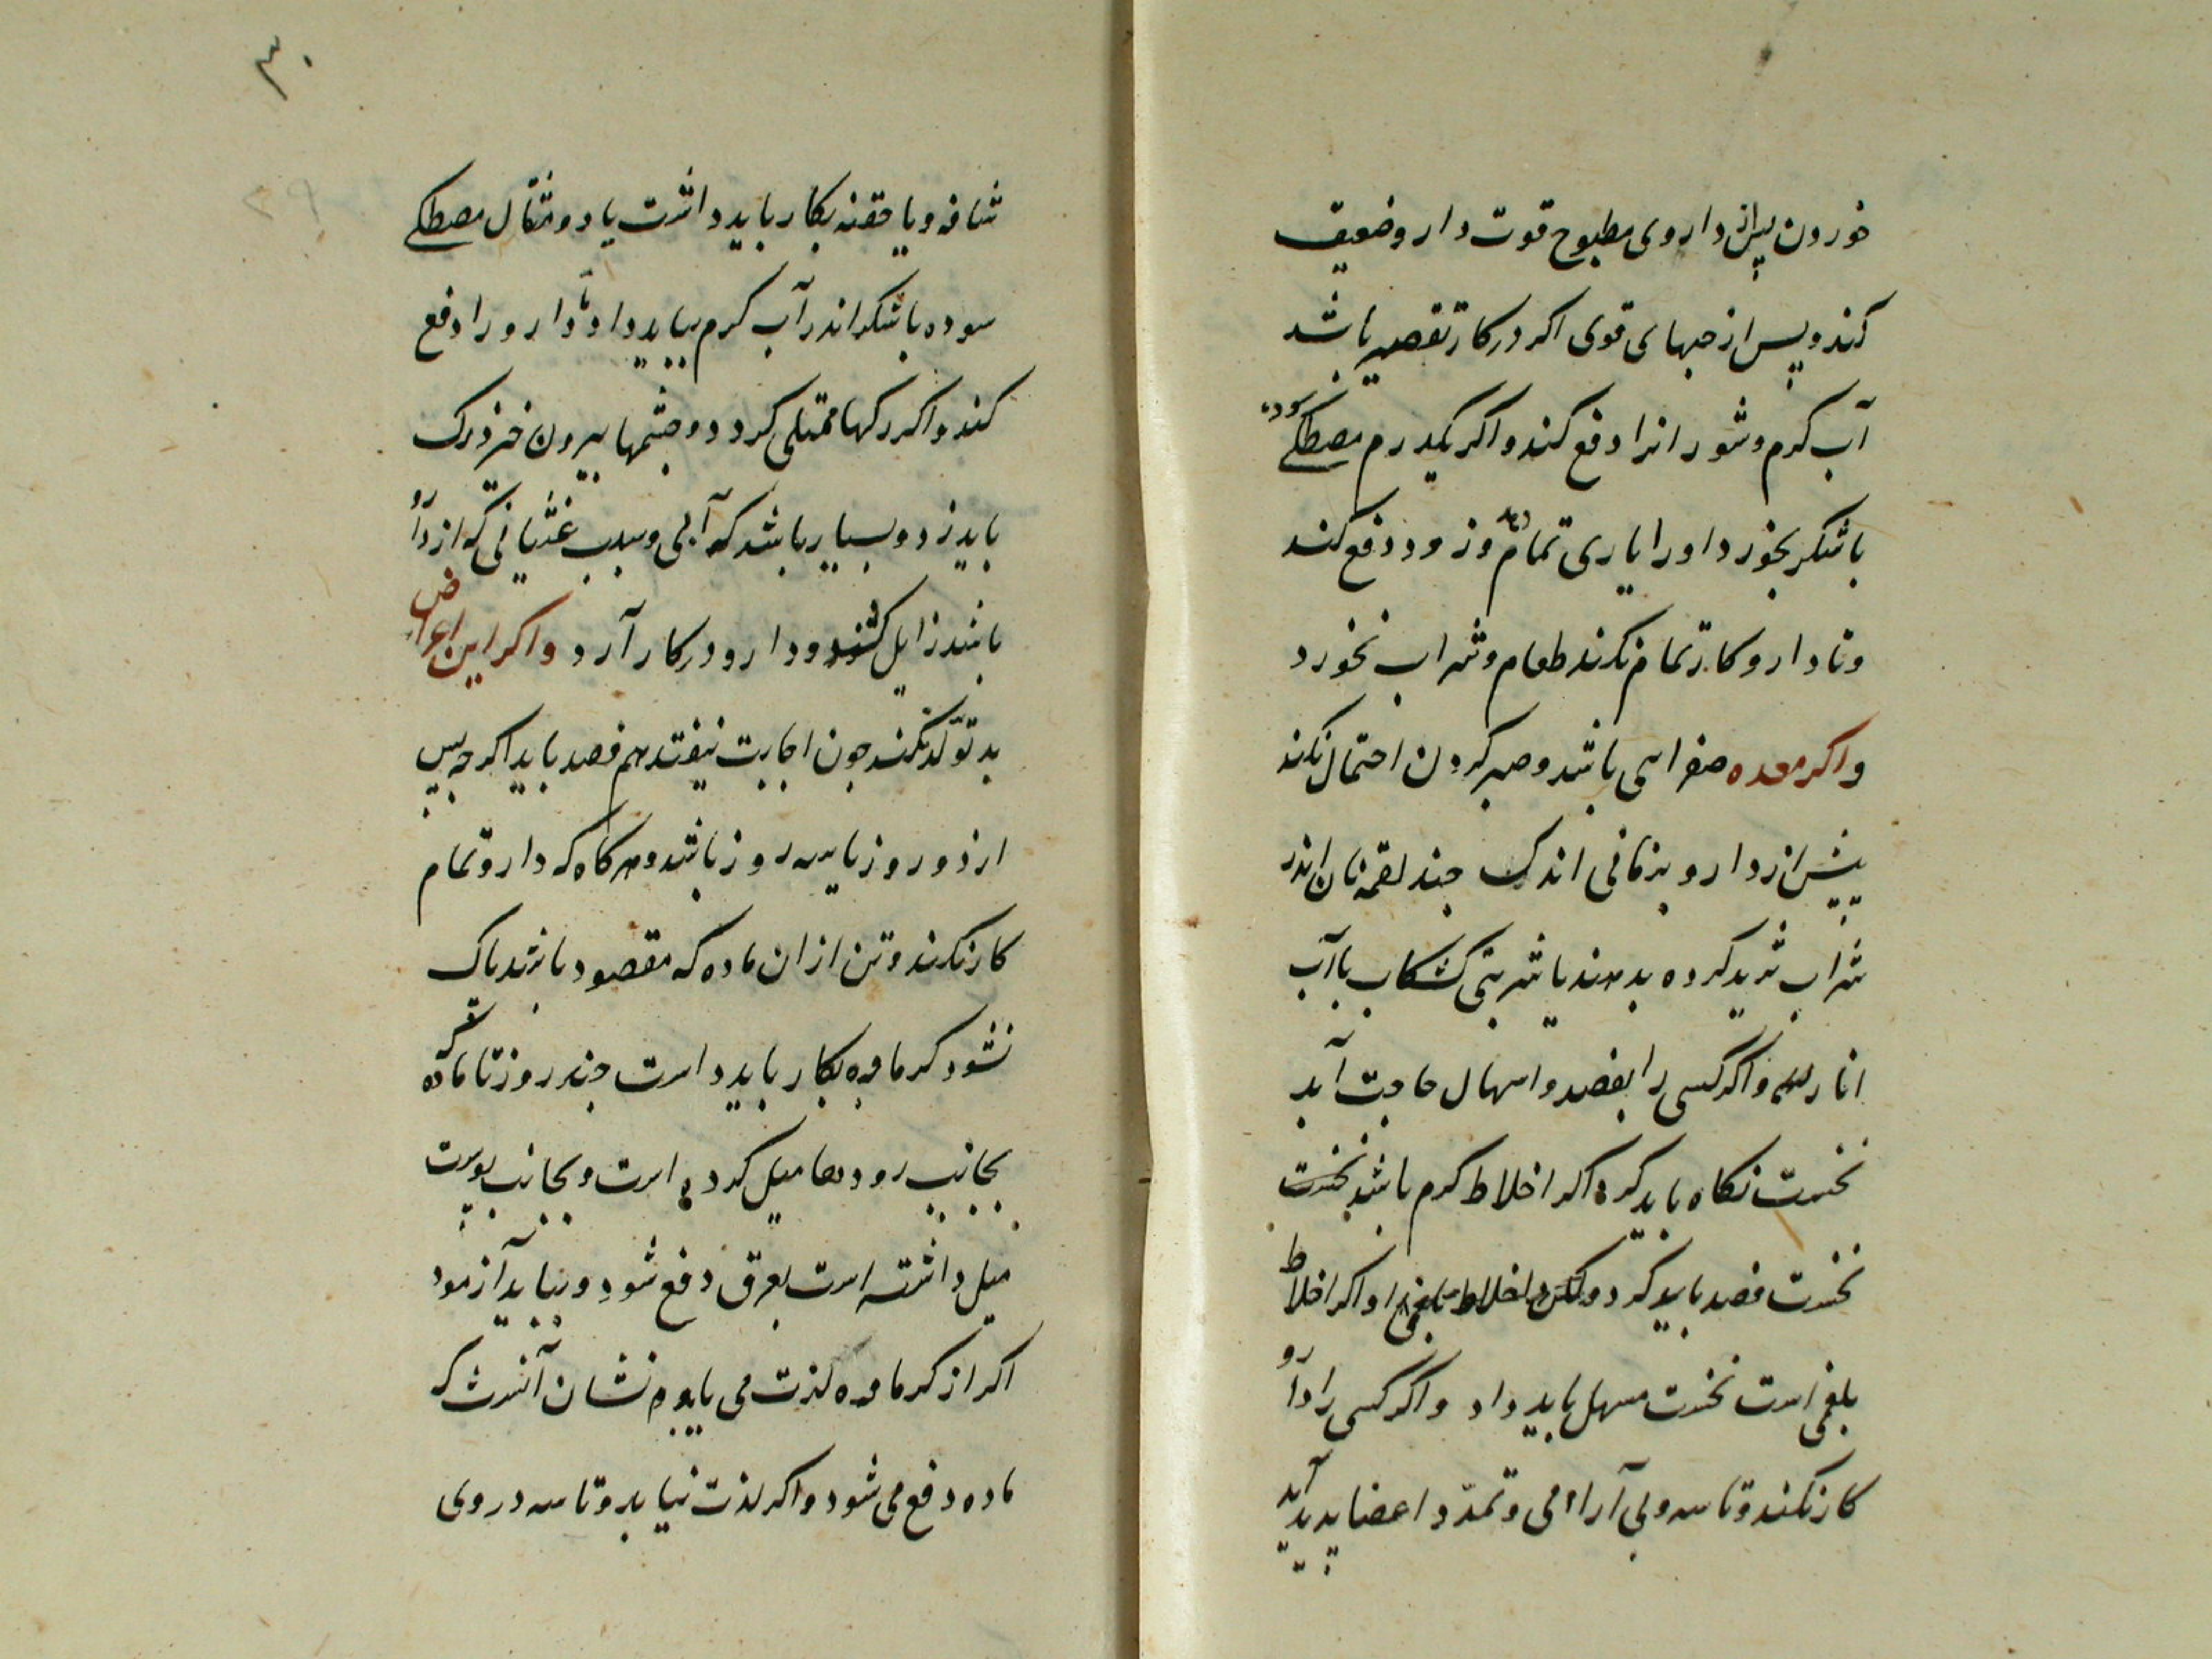 خوردن پس از داروی مطبوح قوت دارو ضعیف
کند و پس از حبهای قوی اکر در کار تقصیر باشد
آب کرم و شور انرا دفع کند و اکر یکدرم مصطکی سوده
باشکر بخورد او را یاری تمام دهد و زود دفع کند
و تا دارو کار تمام نکند طعام و شراب نخورد
و اکر معده صفرایی باشد و صبر کردن احتمال نکند
پیش از دارو بزمانی اندک جند لقمه نان اندر
شراب ثرید کرده بدهند یا شربتی کشکاب با آب
انار و اکر کسی را بفصد و اسهال حاجت آید
نخست نکاه باید کرد اکر اخلاط کرم باشد نخست
نخست فصد باید کرد و اکر اخلاط
بلغمی است نخست مسهل باید داد و اکر کسی را دارو
کار نکند و تاسه و بی آرامی و تمدد اعضا پدید آید
۳۰
شافه و یا حقنه بکار باید داشت یا دو مثقال مصطکی
سوده باشکر اندر آب کرم بباید داد تا دارو را دفع
کند و اکر رکها ممتلی کردد و جشمها بیرون خیزد رک
باید زد و بسیار باشد که آبی و سبب غثیانی که از دارو
باشد زایل کند و دارو در کار آرد و اکر این اعراض
بد تولد نکند جون اجابت نیفتد هم فصد باید اکر جه پس
از دو روز یا سه روز باشد و هر کاه که دارو تمام
کار نکند و تن از ان ماده که مقصود باشد باک
نشود کرمابه بکار باید داست جند روز تا ماده
بجانب رودها میل کرده است و بجانب پوست
میل داشته است بعرق دفع شود و بباید آزمود
اکر از کرمابه لذت می یابد نشان آنست که
ماده دفع می شود و اکر لذت نیابد و تاسه در وی